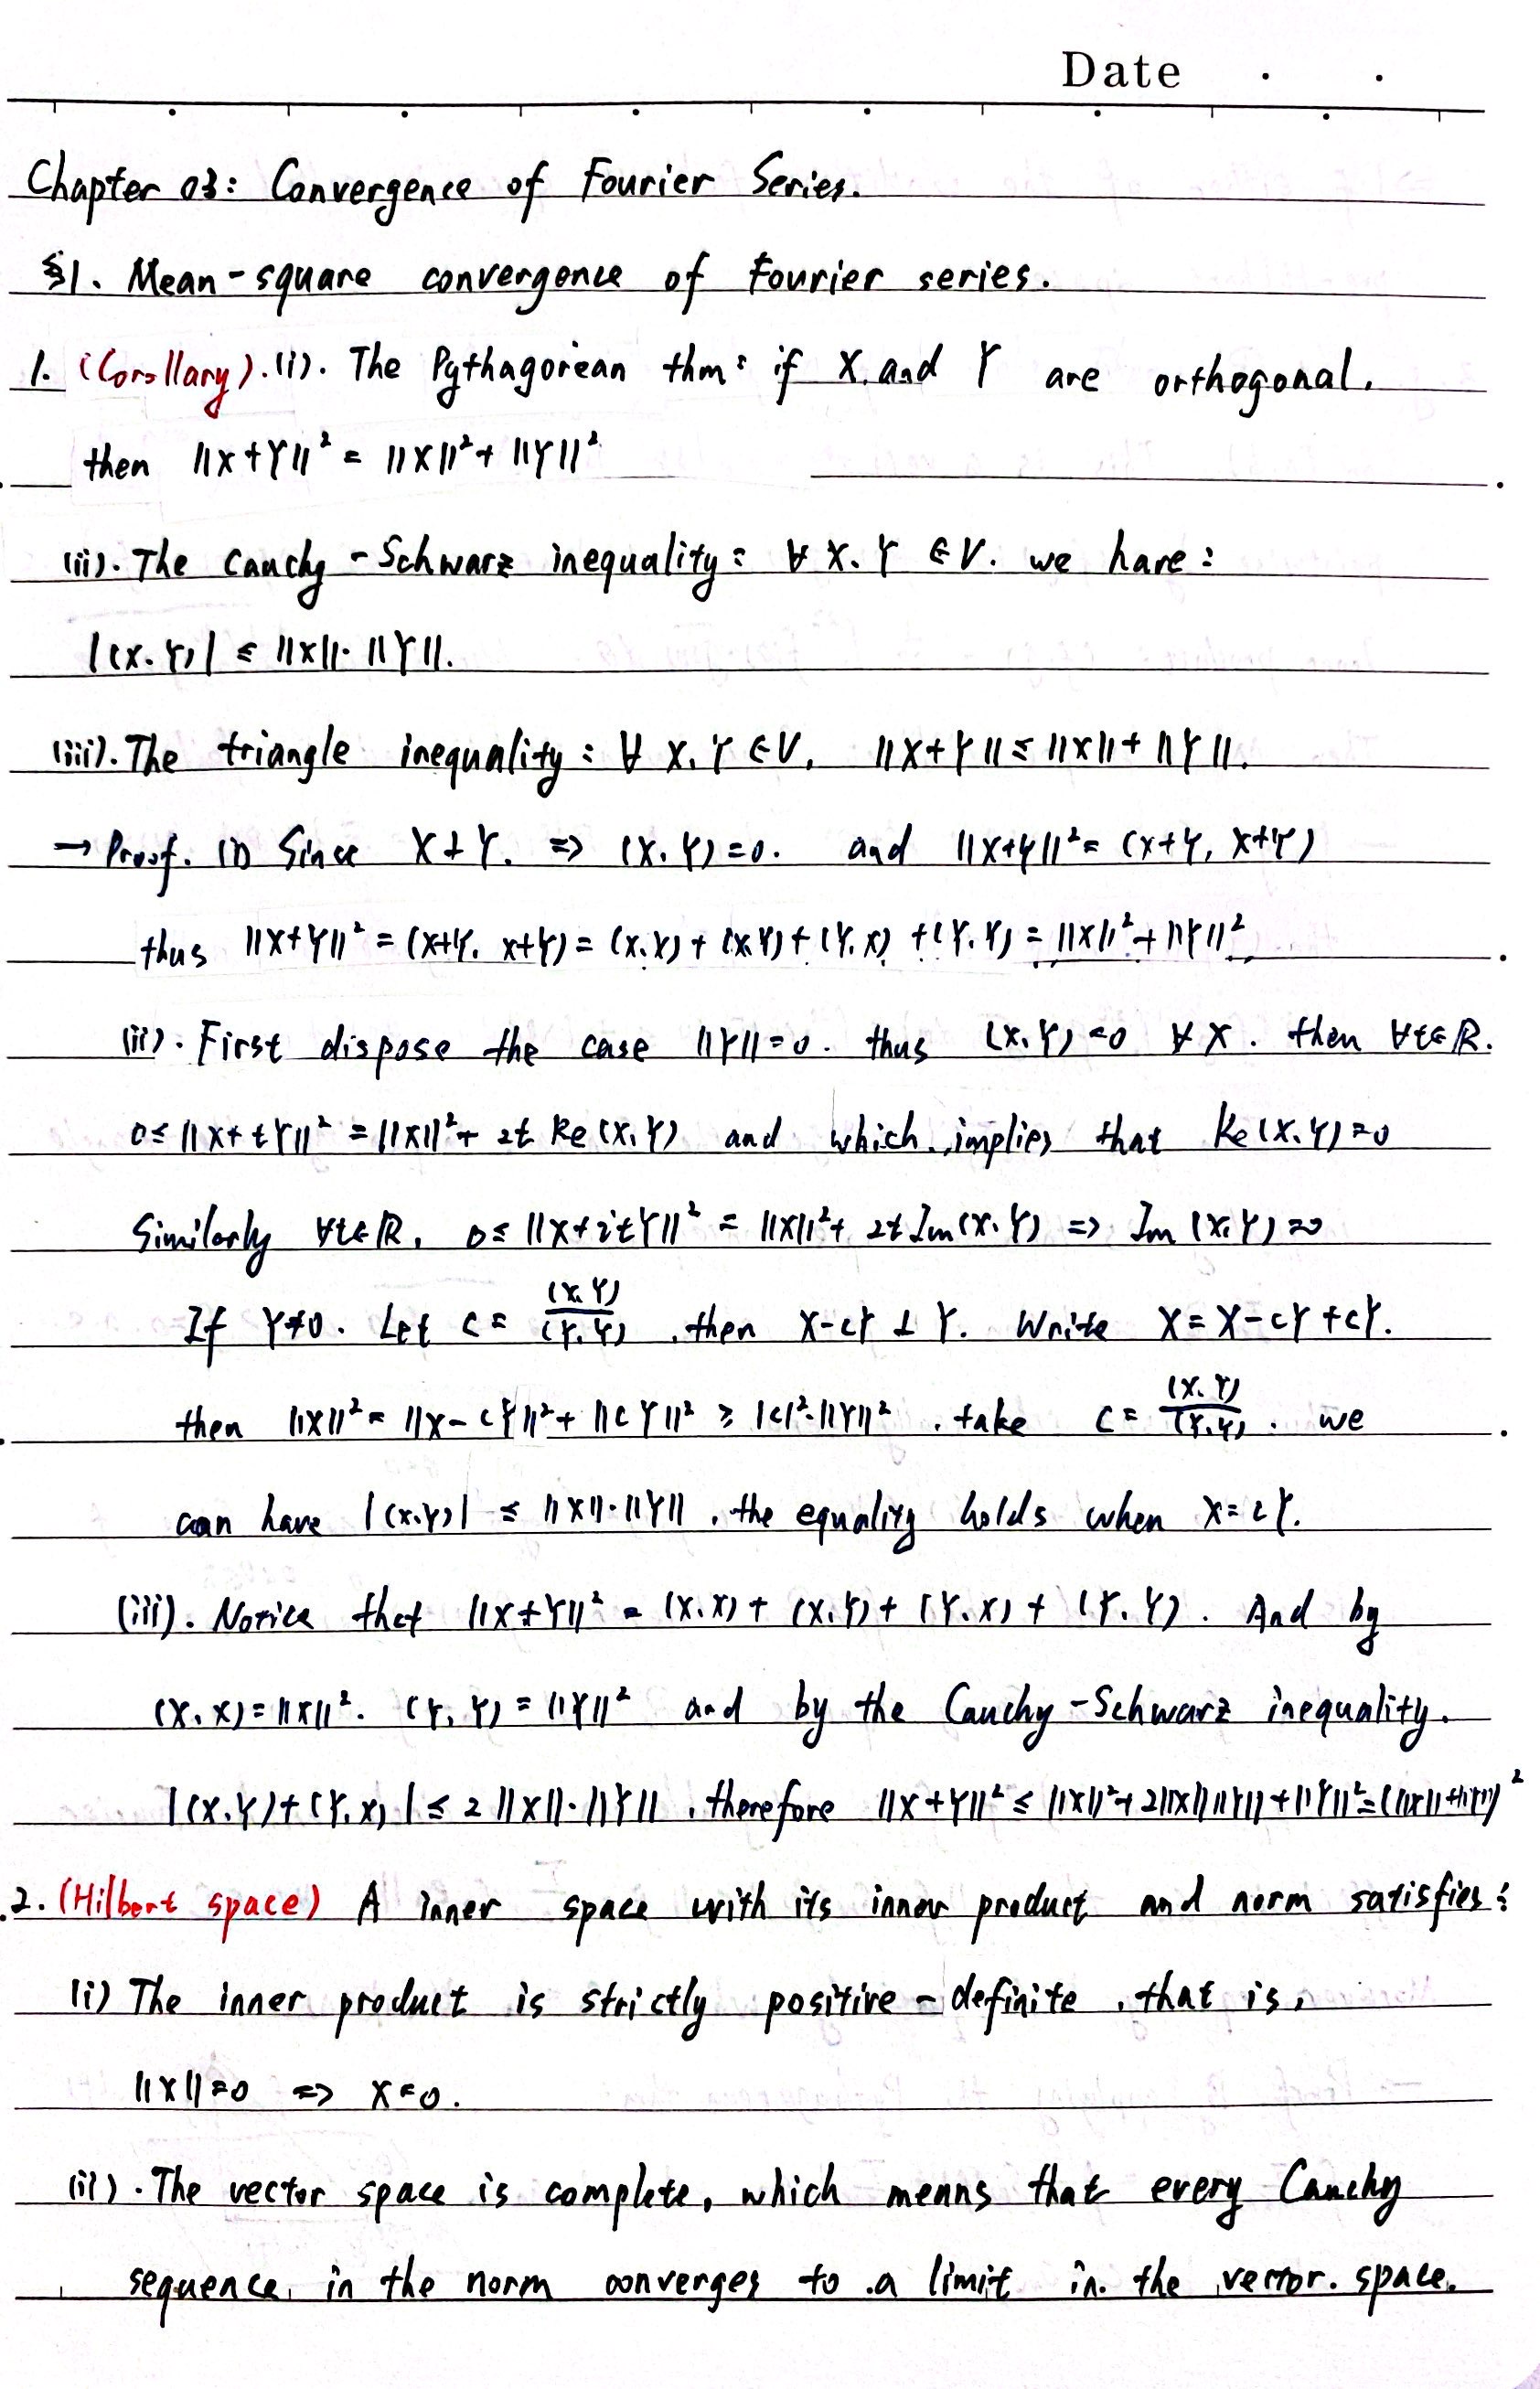 Date . .
Chapter 03: Convergence of Fourier Series.
§1. Mean-square convergence of Fourier series.
1. (Corollary). (i). The Pythagorean thm: if X and Y are orthogonal.
then ||X+Y||² = ||X||² + ||Y||²
(ii). The Cauchy-Schwarz inequality: ∀ X. Y ∈ V. we have:
|(X.Y)| ≤ ||X||·||Y||.
(iii). The triangle inequality: ∀ X, Y ∈ V, ||X+Y|| ≤ ||X|| + ||Y||.
→ Proof. (i) Since X⊥Y. => (X.Y)=0. and ||X+Y||² = (X+Y, X+Y)
thus ||X+Y||² = (X+Y, X+Y) = (X.X) + (X.Y) + (Y.X) + (Y.Y) = ||X||² + ||Y||²
(ii). First dispose the case ||Y||=0. thus (X,Y)=0 ∀ X. then ∀t∈R.
0 ≤ ||X+tY||² = ||X||² + 2t Re(X,Y) and which implies that Re(X.Y)=0
Similarly ∀t∈R, 0 ≤ ||X+itY||² = ||X||² + 2t Im(X.Y) => Im(X.Y)=0
If Y≠0. Let c = (X.Y)/(Y.Y), then X-cY ⊥ Y. Write X = X-cY+cY.
then ||X||² = ||X-cY||² + ||cY||² ≥ |c|²·||Y||², take c = (X.Y)/(Y.Y). we
can have |(X.Y)| ≤ ||X||·||Y||, the equality holds when X=cY.
(iii). Notice that ||X+Y||² = (X.X) + (X.Y) + (Y.X) + (Y.Y). And by
(X.X) = ||X||². (Y,Y) = ||Y||² and by the Cauchy-Schwarz inequality.
|(X.Y)+(Y.X)| ≤ 2||X||·||Y||, therefore ||X+Y||² ≤ ||X||² + 2||X||||Y|| + ||Y||² = (||X||+||Y||)²
2. (Hilbert space) A inner space with its inner product and norm satisfies:
(i) The inner product is strictly positive-definite, that is,
||X||=0 => X=0.
(ii). The vector space is complete, which means that every Cauchy
sequence in the norm converges to a limit in the vector space.